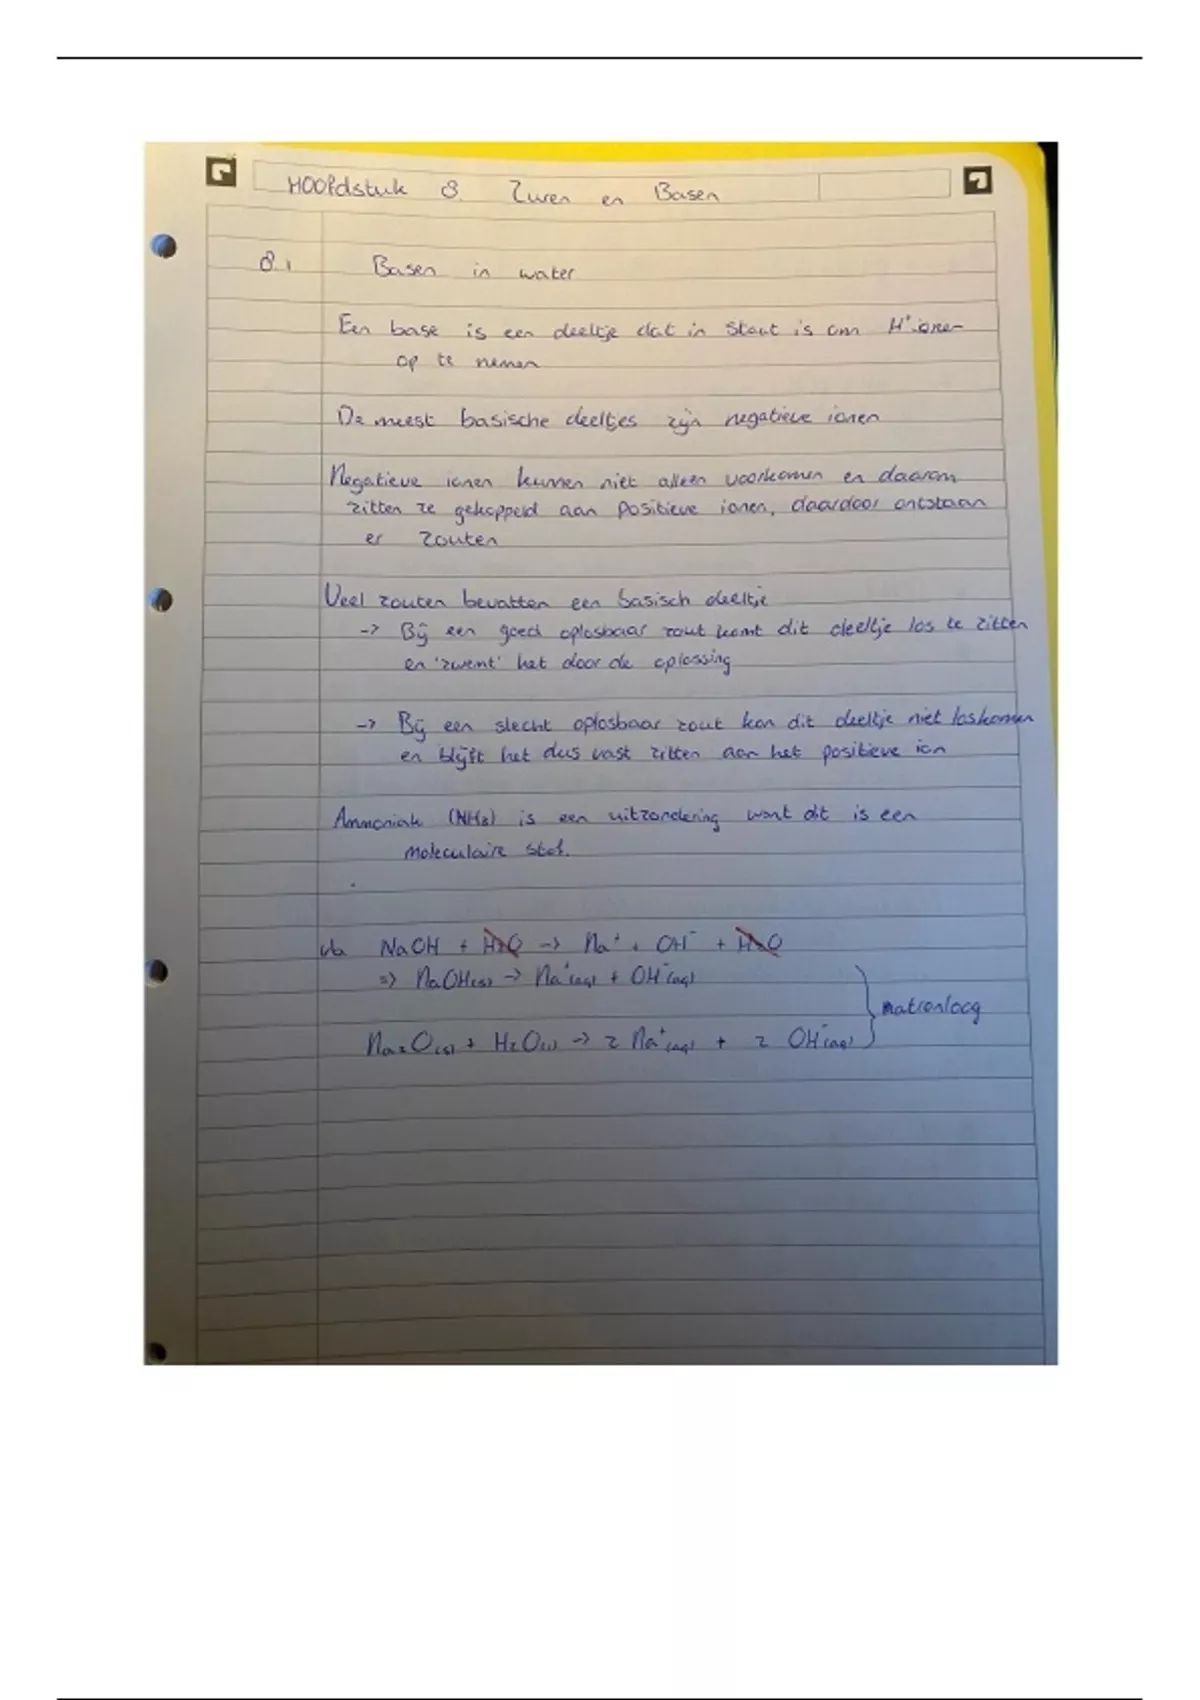 Hoofdstuk 8. Zuren en Basen
8.1 Basen in water
Een base is een deeltje dat in staat is om H⁺ ionen
op te nemen
De meest basische deeltjes zijn negatieve ionen
Negatieve ionen kunnen niet alleen voorkomen en daarom
zitten ze gekoppeld aan positieve ionen, daardoor ontstaan
er zouten
Veel zouten bevatten een basisch deeltje
-> Bij een goed oplosbaar zout komt dit deeltje los te zitten
en 'zwemt' het door de oplossing
-> Bij een slecht oplosbaar zout kan dit deeltje niet loskomen
en blijft het dus vast zitten aan het positieve ion
Ammoniak (NH₃) is een uitzondering want dit is een
moleculaire stof.
vb NaOH + H₂O -> Na⁺ + OH⁻ + H₂O
=> NaOH(s) -> Na⁺(aq) + OH⁻(aq)
natronloog
Na₂O(s) + H₂O(l) -> 2 Na⁺(aq) + 2 OH⁻(aq)